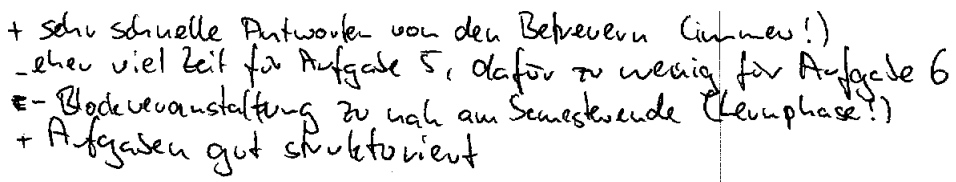 + sehr schnelle Antworten von den Betreuern (immer!)
- eher viel Zeit für Aufgabe 5, dafür zu wenig für Aufgabe 6
- Blockveranstaltung zu nah am Semesterende (Lernphase!)
+ Aufgaben gut strukturiert